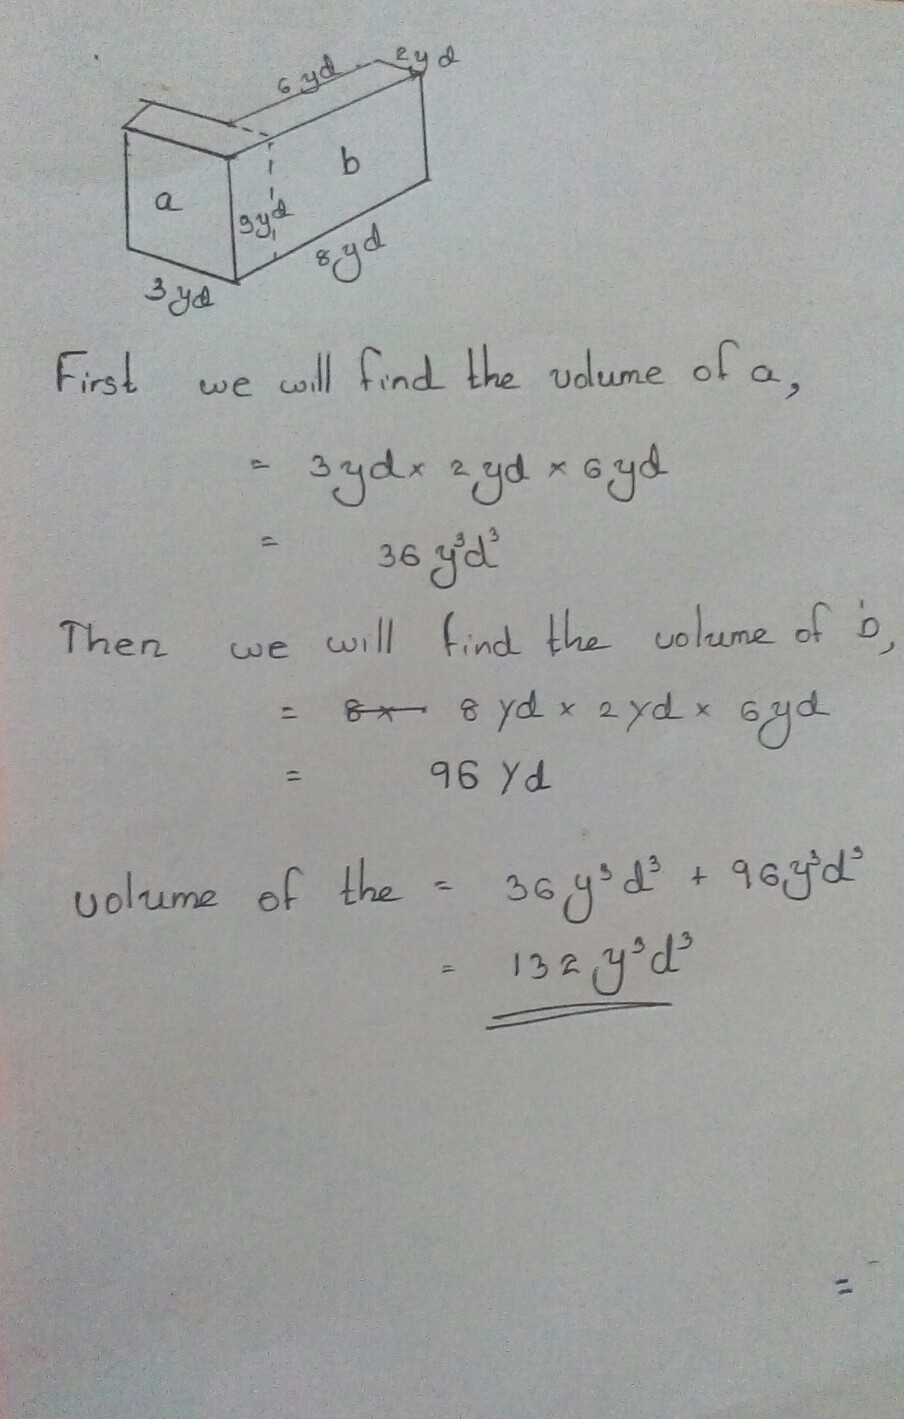 6 yd 2yd
a b
9yd
8yd
3yd
First we will find the volume of a,
= 3yd x 2yd x 6yd
= 36 y³d³
Then we will find the volume of b,
= 8 yd x 2yd x 6yd
= 96 Yd
volume of the = 36 y³d³ + 96y³d³
= 132 y³d³
=